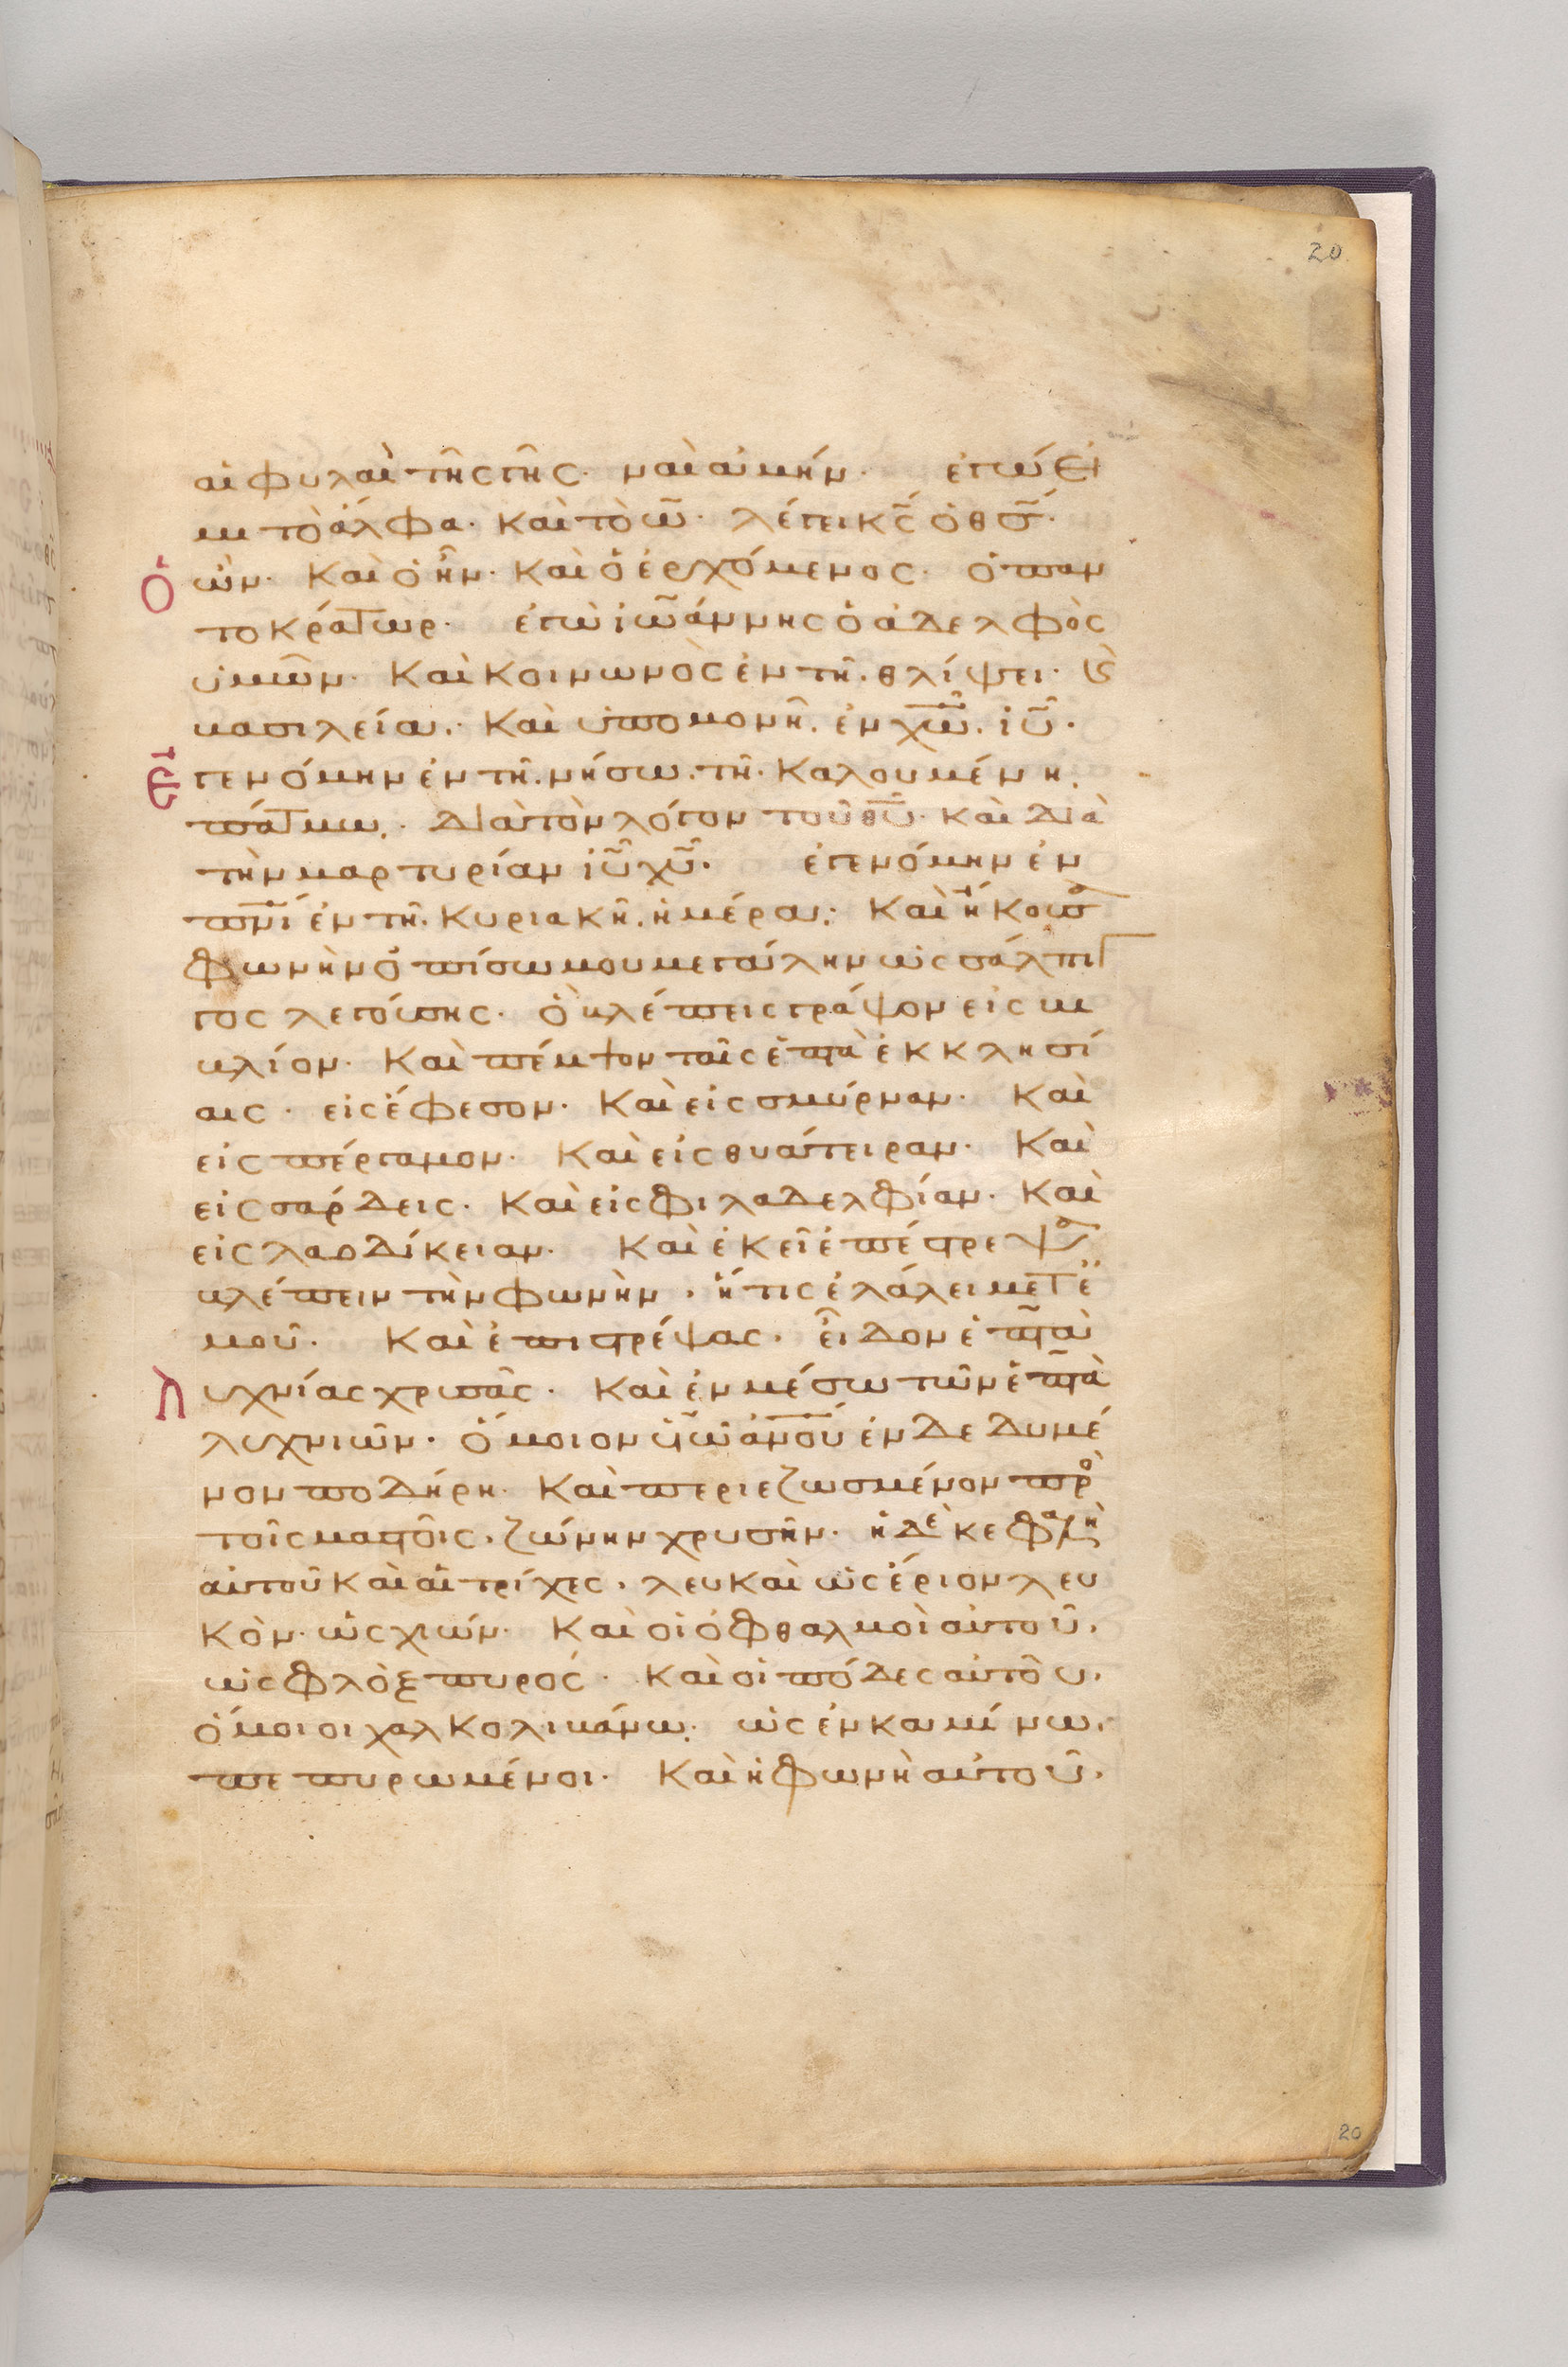 20
αἱ φυλαὶ τῆς γῆς· ναὶ ἀμήν· ἐγώ εἰ
μι τὸ ἄλφα· καὶ τὸ ω̃· λέγει κ̅ς̅ ὁ θ̅ς̅·
ὁ ὢν· καὶ ὁ ἦν· καὶ ὁ ἐρχόμενος· ὁ παν
τοκράτωρ· ἐγὼ ἰωάννης ὁ ἀδελφὸς
ὑμῶν· καὶ κοινωνὸς ἐν τῆ θλίψει· ϗ
βασιλεία· καὶ ὑπομονῆ· ἐν χ̅ω̅ ι̅υ̅·
ἐγενόμην ἐν τῆ νήσω τῆ καλουμένη
πάτμω· διὰ τὸν λόγον τοῦ θ̅υ̅· καὶ διὰ
τὴν μαρτυρίαν ι̅υ̅ χ̅υ̅· ἐγενόμην ἐν
π̅ν̅ι̅ ἐν τῆ κυριακῆ ἡμέρα· καὶ ἤκουσα
φωνὴν ὀπίσω μου μεγάλην ὡς σάλπιγ
γος λεγούσης· ὃ βλέπεις γράψον εἰς βι
βλίον· καὶ πέμψον ταῖς ἑπτὰ ἐκκλησί
αις· εἰς ἔφεσον· καὶ εἰς σμύρναν· καὶ
εἰς πέργαμον· καὶ εἰς θυάτειραν· καὶ
εἰς σάρδεις· καὶ εἰς φιλαδελφίαν· καὶ
εἰς λαοδίκειαν· καὶ ἐκεῖ ἐπέστρεψα
βλέπειν τὴν φωνὴν· ἥτις ἐλάλει μετ ἐ
μοῦ· καὶ ἐπιστρέψας· εἶδον ἑπτὰ
λυχνίας χρυσᾶς· καὶ ἐν μέσω τῶν ἑπτὰ
λυχνιῶν· ὅμοιον υ̅ω̅ α̅ν̅ο̅υ̅ ἐνδεδυμέ
νον ποδήρη· καὶ περιεζωσμένον πρὸς
τοῖς μαστοῖς· ζώνην χρυσῆν· ἡ δὲ κεφαλὴ
αὐτοῦ καὶ αἱ τρίχες· λευκαὶ ὡς ἔριον λευ
κὸν· ὡς χιών· καὶ οἱ ὀφθαλμοὶ αὐτοῦ·
ὡς φλὸξ πυρός· καὶ οἱ πόδες αὐτοῦ·
ὅμοιοι χαλκολιβάνω· ὡς ἐν καμίνω·
πεπυρωμένοι· καὶ ἡ φωνὴ αὐτοῦ·
20